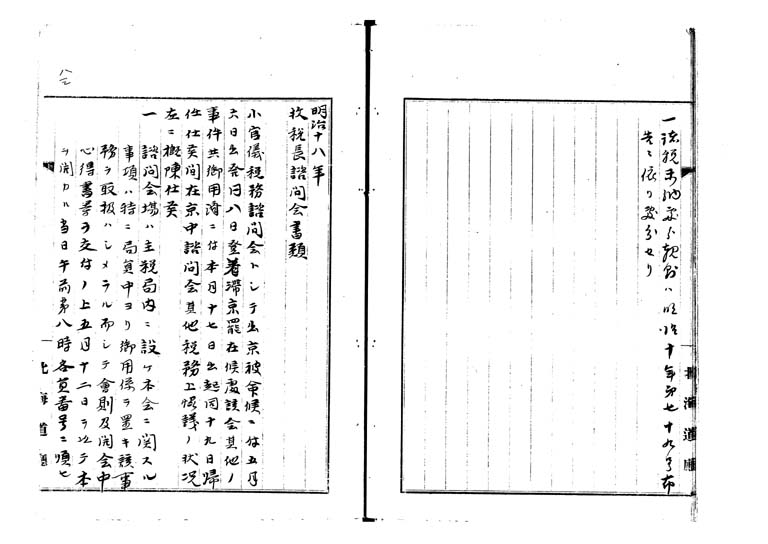 一諸税未納處分規則ハ明治十年第七十九号布
告ニ依リ処分セリ
北海道廳
明治十八年
收税長諮問会書類
小官儀税務諮問会トシテ出京被命候ニ付五月
六日出発同八日登着滞京罷在候處該会其他ノ
事件共御用済ニ付本月十七日出起同十九日帰
仕仕候間在京中諮問会其他税務上ノ状況
左ニ概陳仕候
一諮問会場ハ主税局内ニ設ケ本会ニ関スル
事項ハ特ニ局員中ヨリ御用係ヲ置キ該事
務ヲ取扱ハシメラル而シテ會則及開会中
心得書等ヲ交付ノ上五月十二日ヲ以テ本
ヲ開カル当日午前第八時各員番号ニ順ヒ
北海道廳
八三